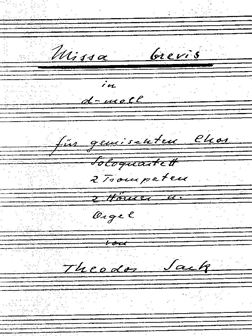 Missa brevis
in
d-moll
für gemischten Chor
Soloquartett
2 Trompeten
2 Hörner u.
Orgel
von
Theodor Sack